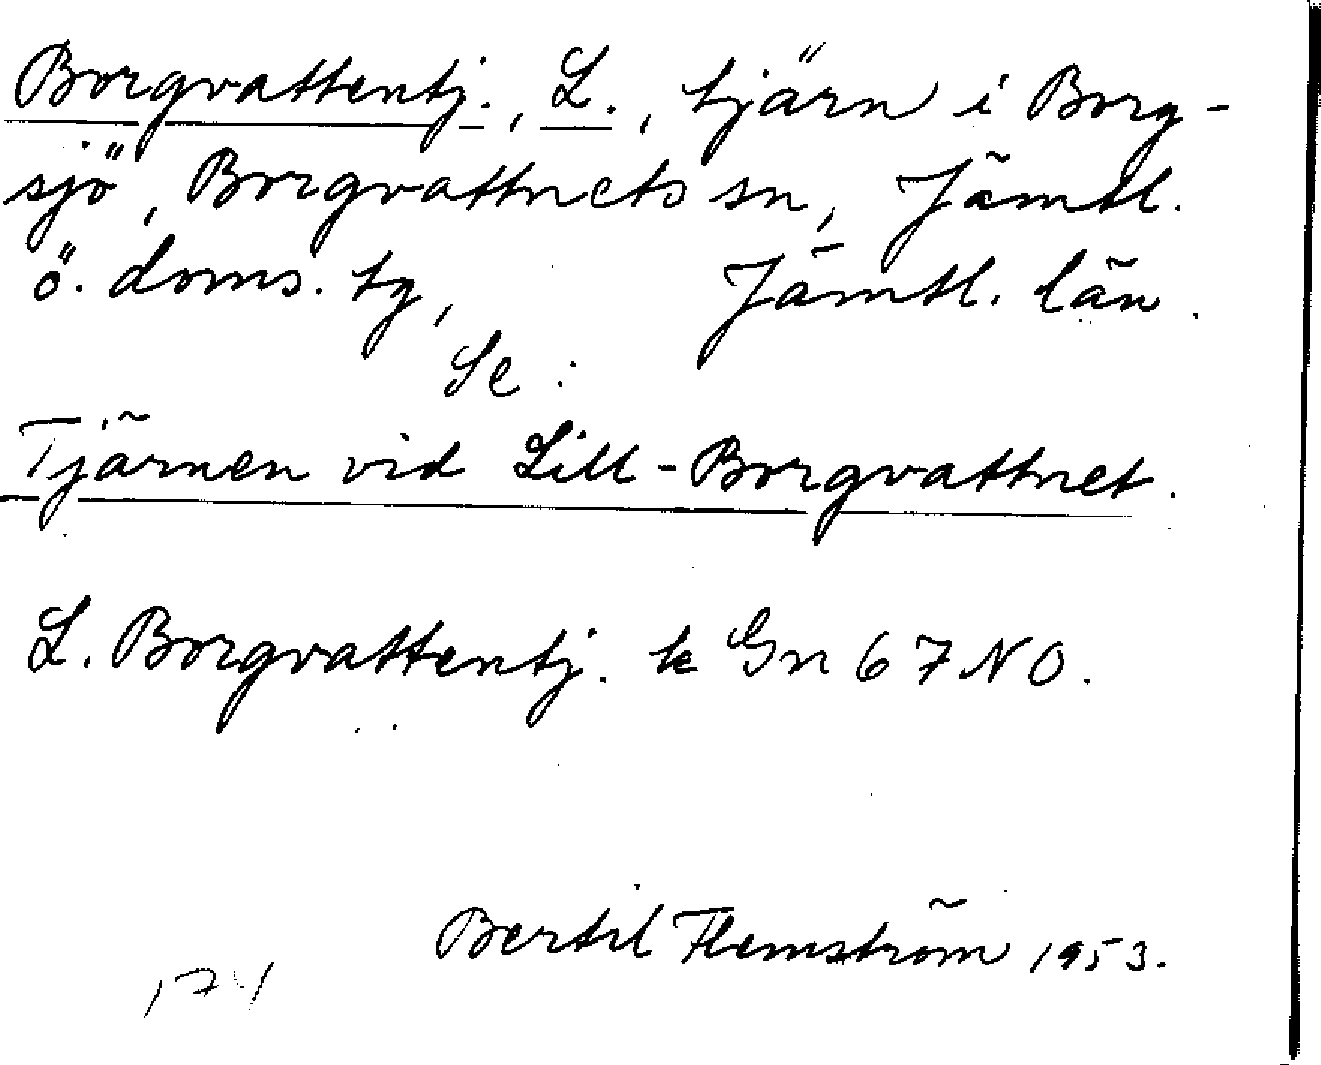 Borgvattentj., L., tjärn i Borg-
sjö, Borgvattnets sn, Jämtl.
ö. doms. tg, Jämtl. län.
Se:
Tjärnen vid Lill-Borgvattnet.
L. Borgvattentj. k Gn 67 NO.
Bertil Flemström 1953.